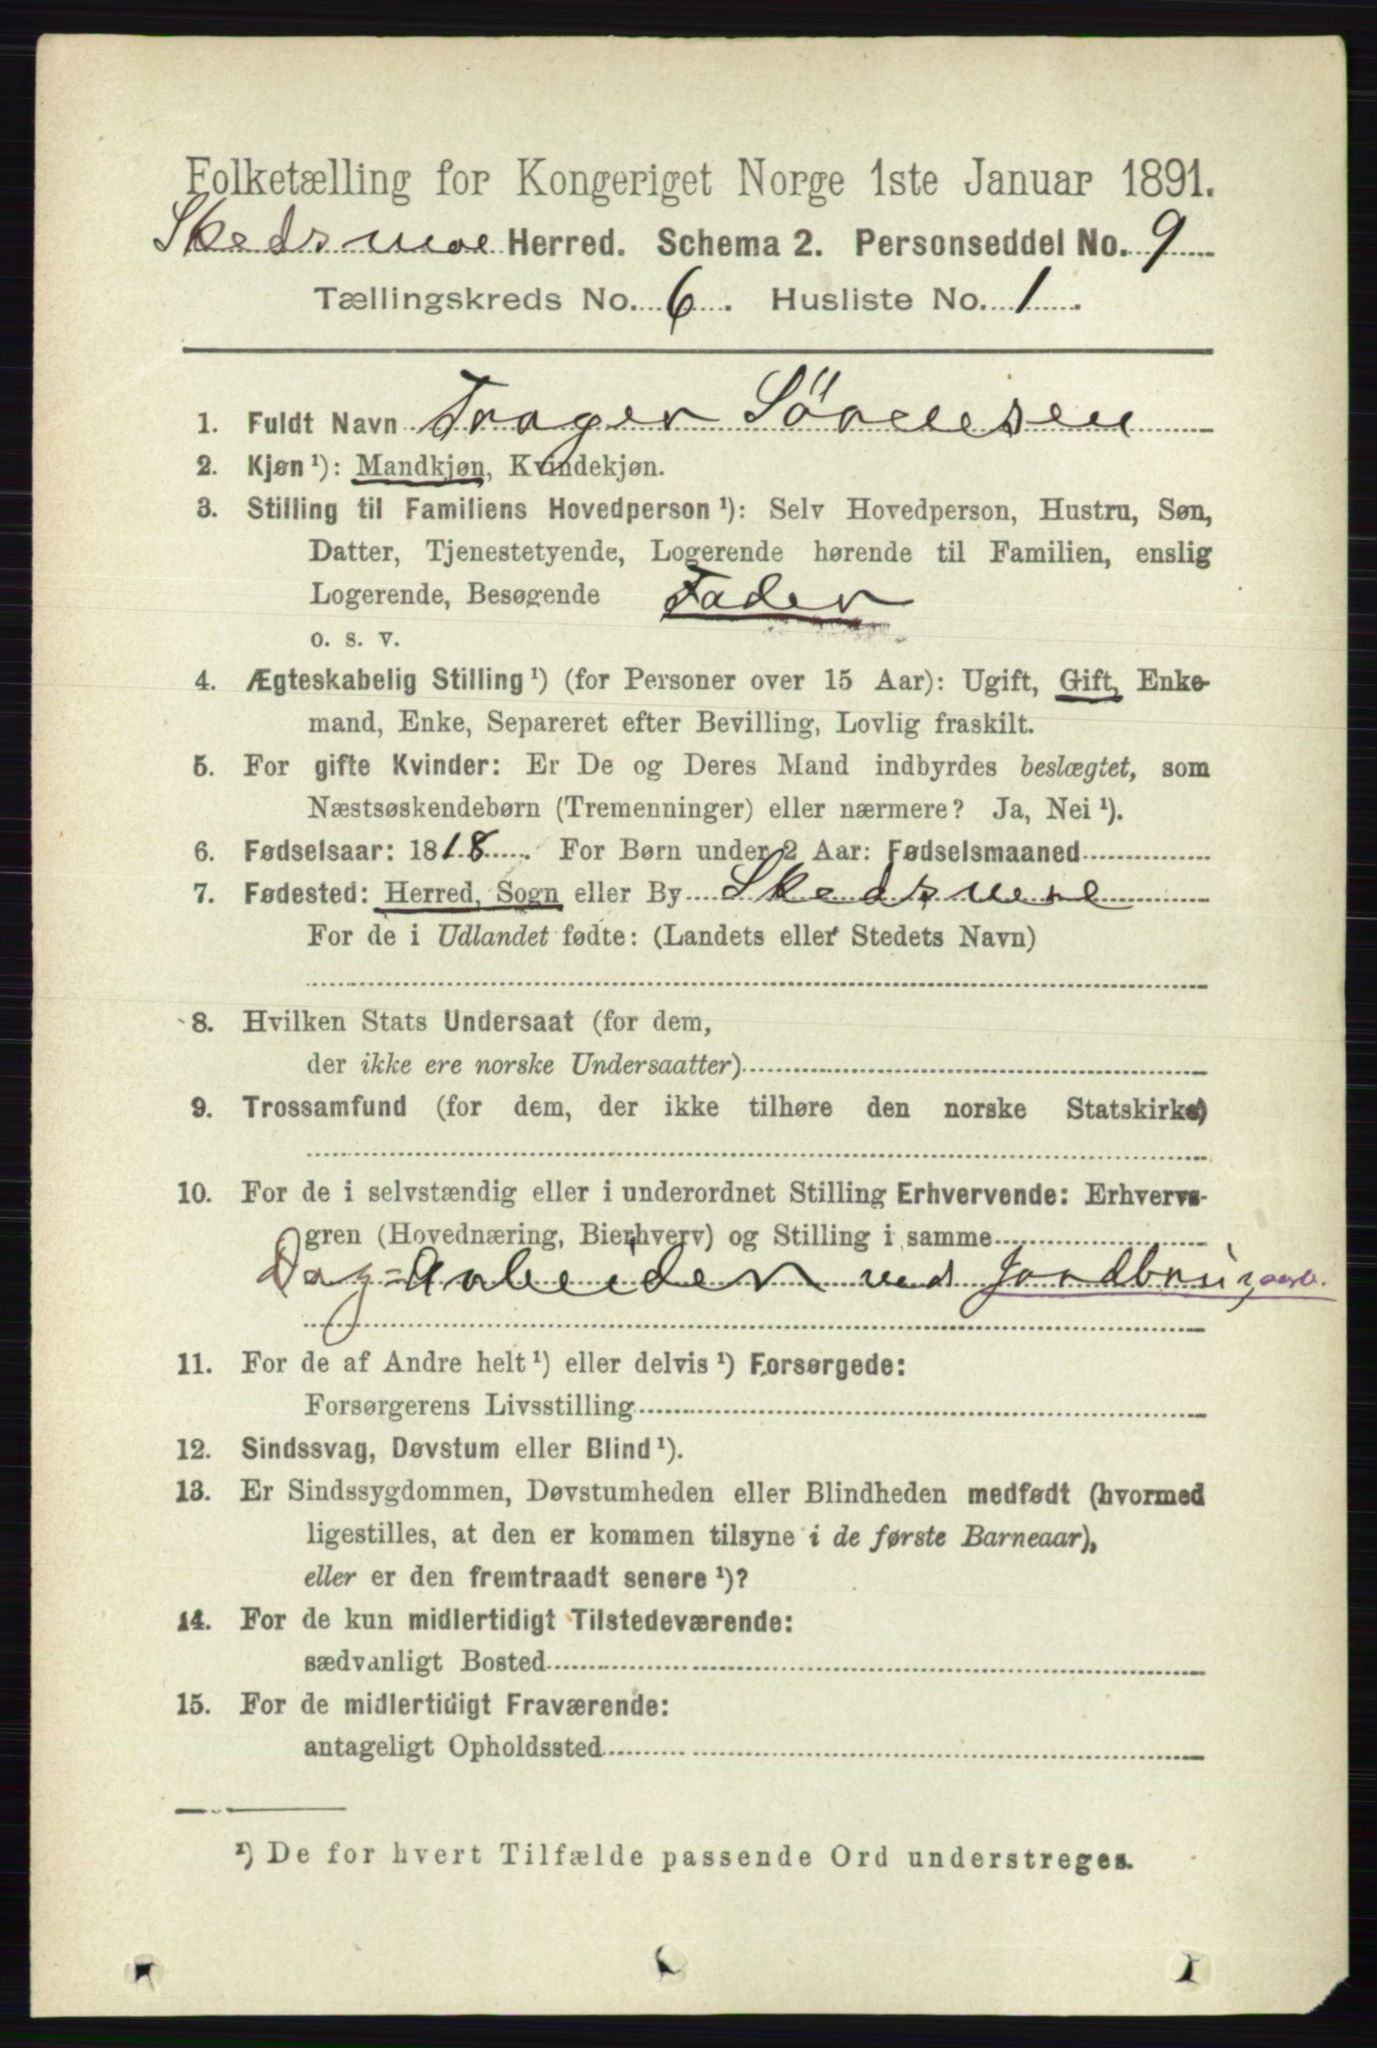 Folketælling for Kongeriget Norge 1ste Januar 1891.
Skedsmoe Herred. Schema 2. Personseddel No. 9
Tællingskreds No. 6. Husliste No. 1.
1. Fuldt Navn Sörensen
2. Kjøn ¹): Mandkjøn, Kvindekjøn.
3. Stilling til Familiens Hovedperson ¹): Selv Hovedperson, Hustru, Søn,
Datter, Tjenestetyende, Logerende hørende til Familien, enslig
Logerende, Besøgende Fader
o. s. v.
4. Ægteskabelig Stilling ¹) (for Personer over 15 Aar): Ugift, Gift, Enke-
mand, Enke, Separeret efter Bevilling, Lovlig fraskilt.
5. For gifte Kvinder: Er De og Deres Mand indbyrdes beslægtet, som
Næstsøskendebørn (Tremenninger) eller nærmere? Ja, Nei ¹).
6. Fødselsaar: 1818. For Børn under 2 Aar: Fødselsmaaned
7. Fødested: Herred, Sogn eller By Skedsmoe
For de i Udlandet fødte: (Landets eller Stedets Navn)
8. Hvilken Stats Undersaat (for dem,
der ikke ere norske Undersaatter)
9. Trossamfund (for dem, der ikke tilhøre den norske Statskirke)
10. For de i selvstændig eller i underordnet Stilling Erhvervende: Erhvervs-
gren (Hovednæring, Bierhverv) og Stilling i samme
Dag=Arbeider ved Jordbrug
11. For de af Andre helt ¹) eller delvis ¹) Forsørgede:
Forsørgerens Livsstilling
12. Sindssvag, Døvstum eller Blind ¹).
13. Er Sindssygdommen, Døvstumheden eller Blindheden medfødt (hvormed
ligestilles, at den er kommen tilsyne i de første Barneaar),
eller er den fremtraadt senere ¹)?
14. For de kun midlertidigt Tilstedeværende:
sædvanligt Bosted
15. For de midlertidigt Fraværende:
antageligt Opholdssted
¹) De for hvert Tilfælde passende Ord understreges.